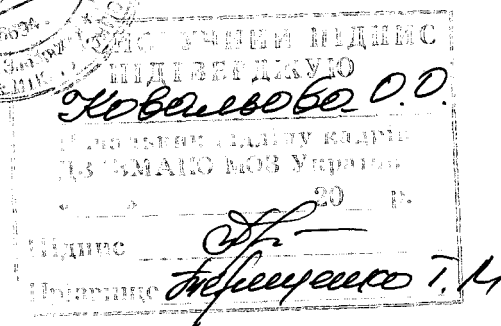 ВЛАСНОРУЧНИЙ ПІДПИС
ПІДТВЕРДЖУЮ
Ковальова О.О.
Начальник відділу кадрів
ДЗ "ЗМАПО МОЗ України"
« » 20 р.
Підпис
Прізвище